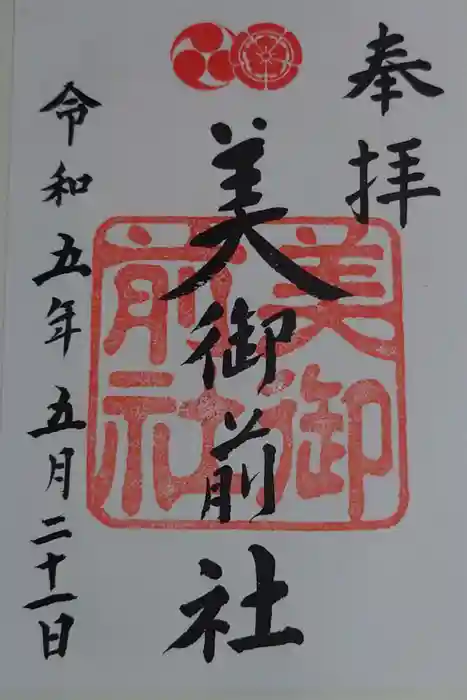 奉拝
美御前社
美御
前社
令和五年五月二十一日